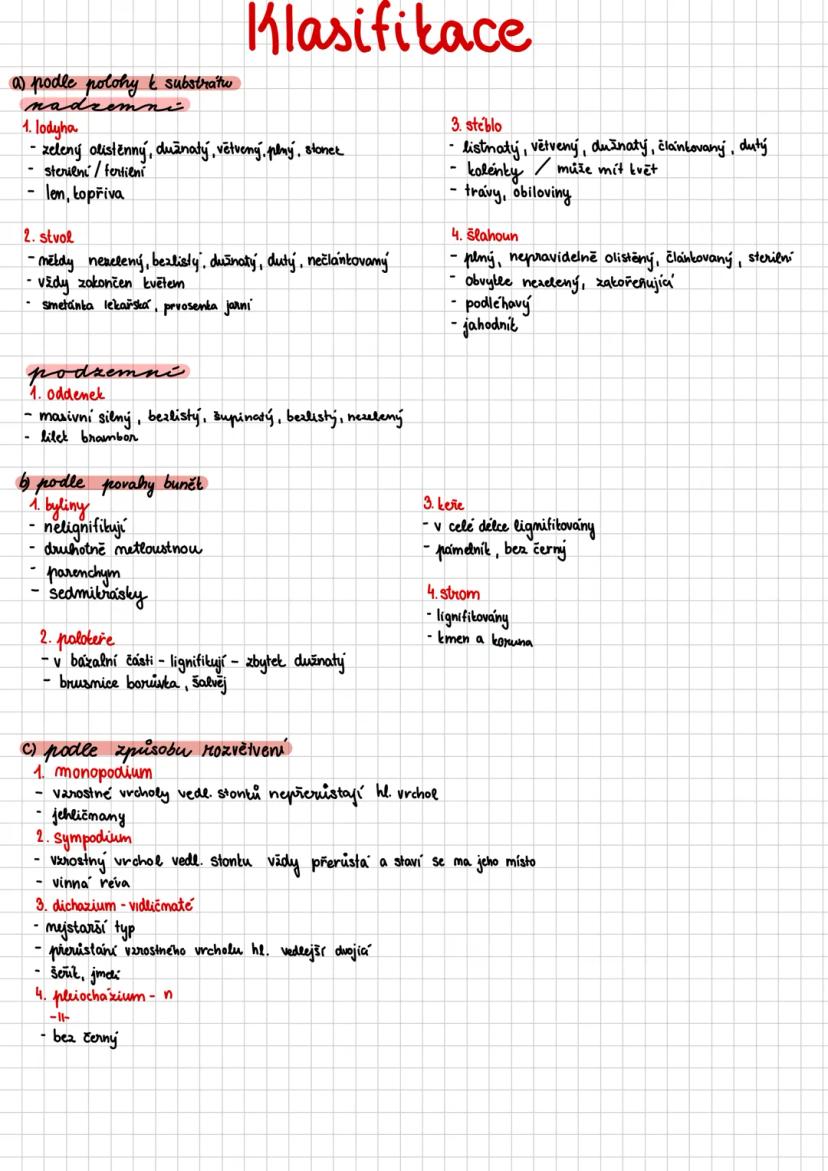 Klasifikace
a) podle polohy k substrátu
nadzemní
1. lodyha
- zelený olistěnný, dužnatý, větvený, plný, stonek
- sterilní / fertilní
- len, kopřiva
2. stvol
- někdy nezelený, bezlistý, dužnatý, dutý, nečlánkovaný
- vždy zakončen květem
- smetánka lékařská, prvosenka jarní
3. stéblo
- listnatý, větvený, dužnatý, článkovaný, dutý
- kolénky / může mít květ
- trávy, obiloviny
4. šlahoun
- plný, nepravidelně olistěný, článkovaný, sterilní
- obvykle nezelený, zakořeňující
- podléhavý
- jahodník
podzemní
1. oddenek
- masivní silný, bezlistý, šupinatý, bezlistý, nezelený
- lilek brambor
b) podle povahy buněk
1. byliny
- nelignifikují
- druhotně netloustnou
- parenchym
- sedmikrásky
2. polokeře
- v bazální části - lignifikují - zbytek dužnatý
- brusnice borůvka, šalvěj
3. keře
- v celé délce lignifikovány
- pámelník, bez černý
4. strom
- lignifikovány
- kmen a koruna
c) podle způsobu rozvětvení
1. monopodium
- vzrostné vrcholy vedl. stonků nepřerůstají hl. vrchol
- jehličnany
2. Sympodium
- vzrostný vrchol vedl. stonku vždy přerůstá a staví se na jeho místo
- vinná réva
3. dichazium - vidličnaté
- nejstarší typ
- přerůstání vzrostného vrcholu hl. vedlejší dvojicí
- šeřík, jmelí
4. pleiocházium - n
-||-
- bez černý